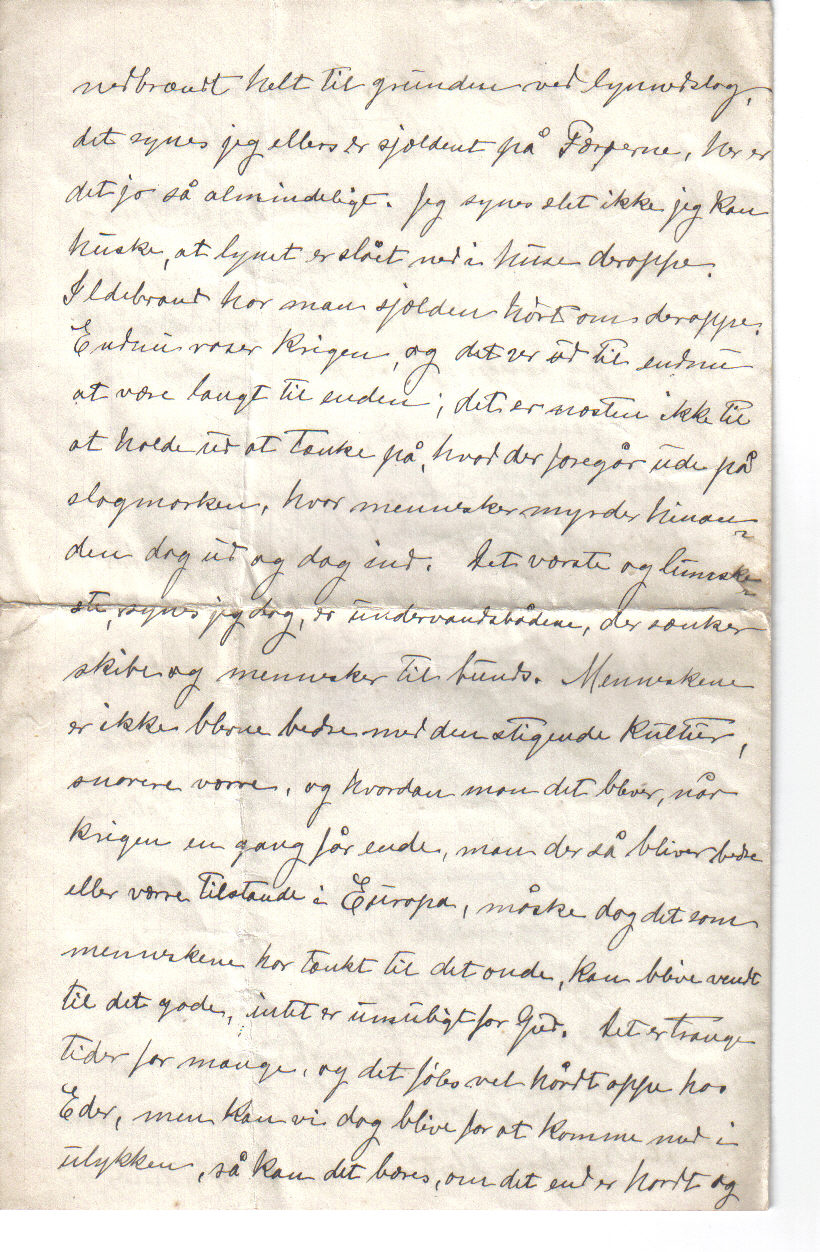 nedbrændt helt til grunden ved lynnedslag,
det synes jeg ellers er sjældent på Færøerne, her er
det jo så almindeligt. Jeg synes slet ikke jeg kan
huske, at lynet er slået ned i huse deroppe.
Ildebrand har man sjælden hørt om deroppe.
Endnu raser krigen, og det ser ud til endnu
at være langt til enden; det er næsten ikke til
at holde ud at tænke på, hvad der foregår ude på
slagmarken, hvor mennesker myrder hinan-
den dag ud og dag ind. Det værste og lumske-
ste, synes jeg dog, er undervandsbådene, der sænker
skibe og mennesker til bunds. Menneskene
er ikke blevne bedre med den stigende kultur,
snarere værre, og hvordan mon det bliver, når
krigen en gang får ende, mon der så bliver bedre
eller værre tilstande i Europa, måske dog det som
menneskene har tænkt til det onde, kan blive vendt
til det gode, intet er umuligt for Gud. Det er trange
tider for mange, og det føles vel hårdt oppe hos
Eder, men kan vi dog blive for at komme med i
ulykken, så kan det bæres, om det end er hårdt og